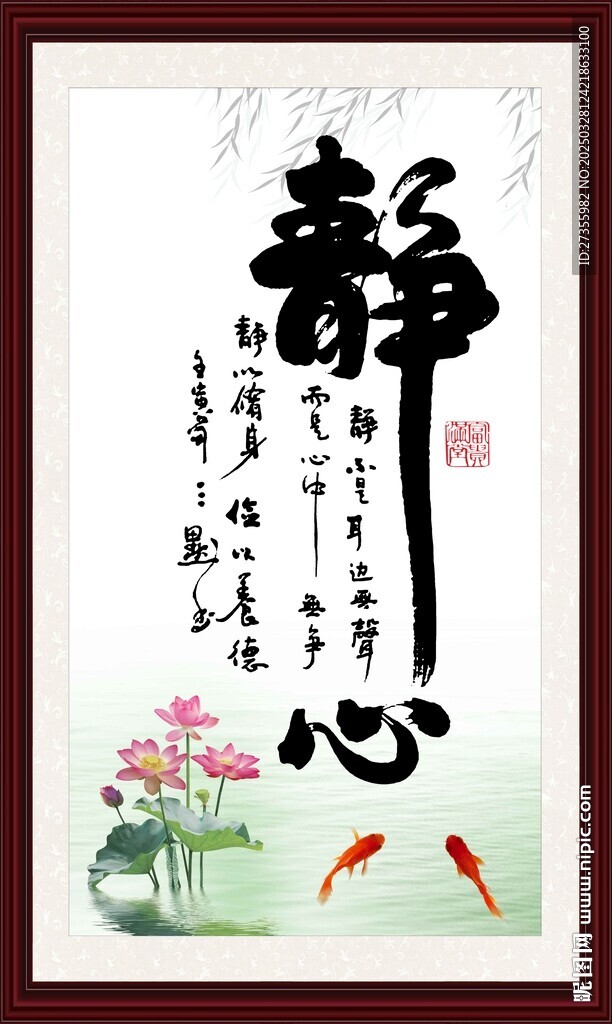 静心
静不是耳边無聲
而是心中無争
静以脩身 儉以養德
壬寅年
富貴滿堂
ID:27355982 NO:20250328124218633100
昵图网 www.nipic.com